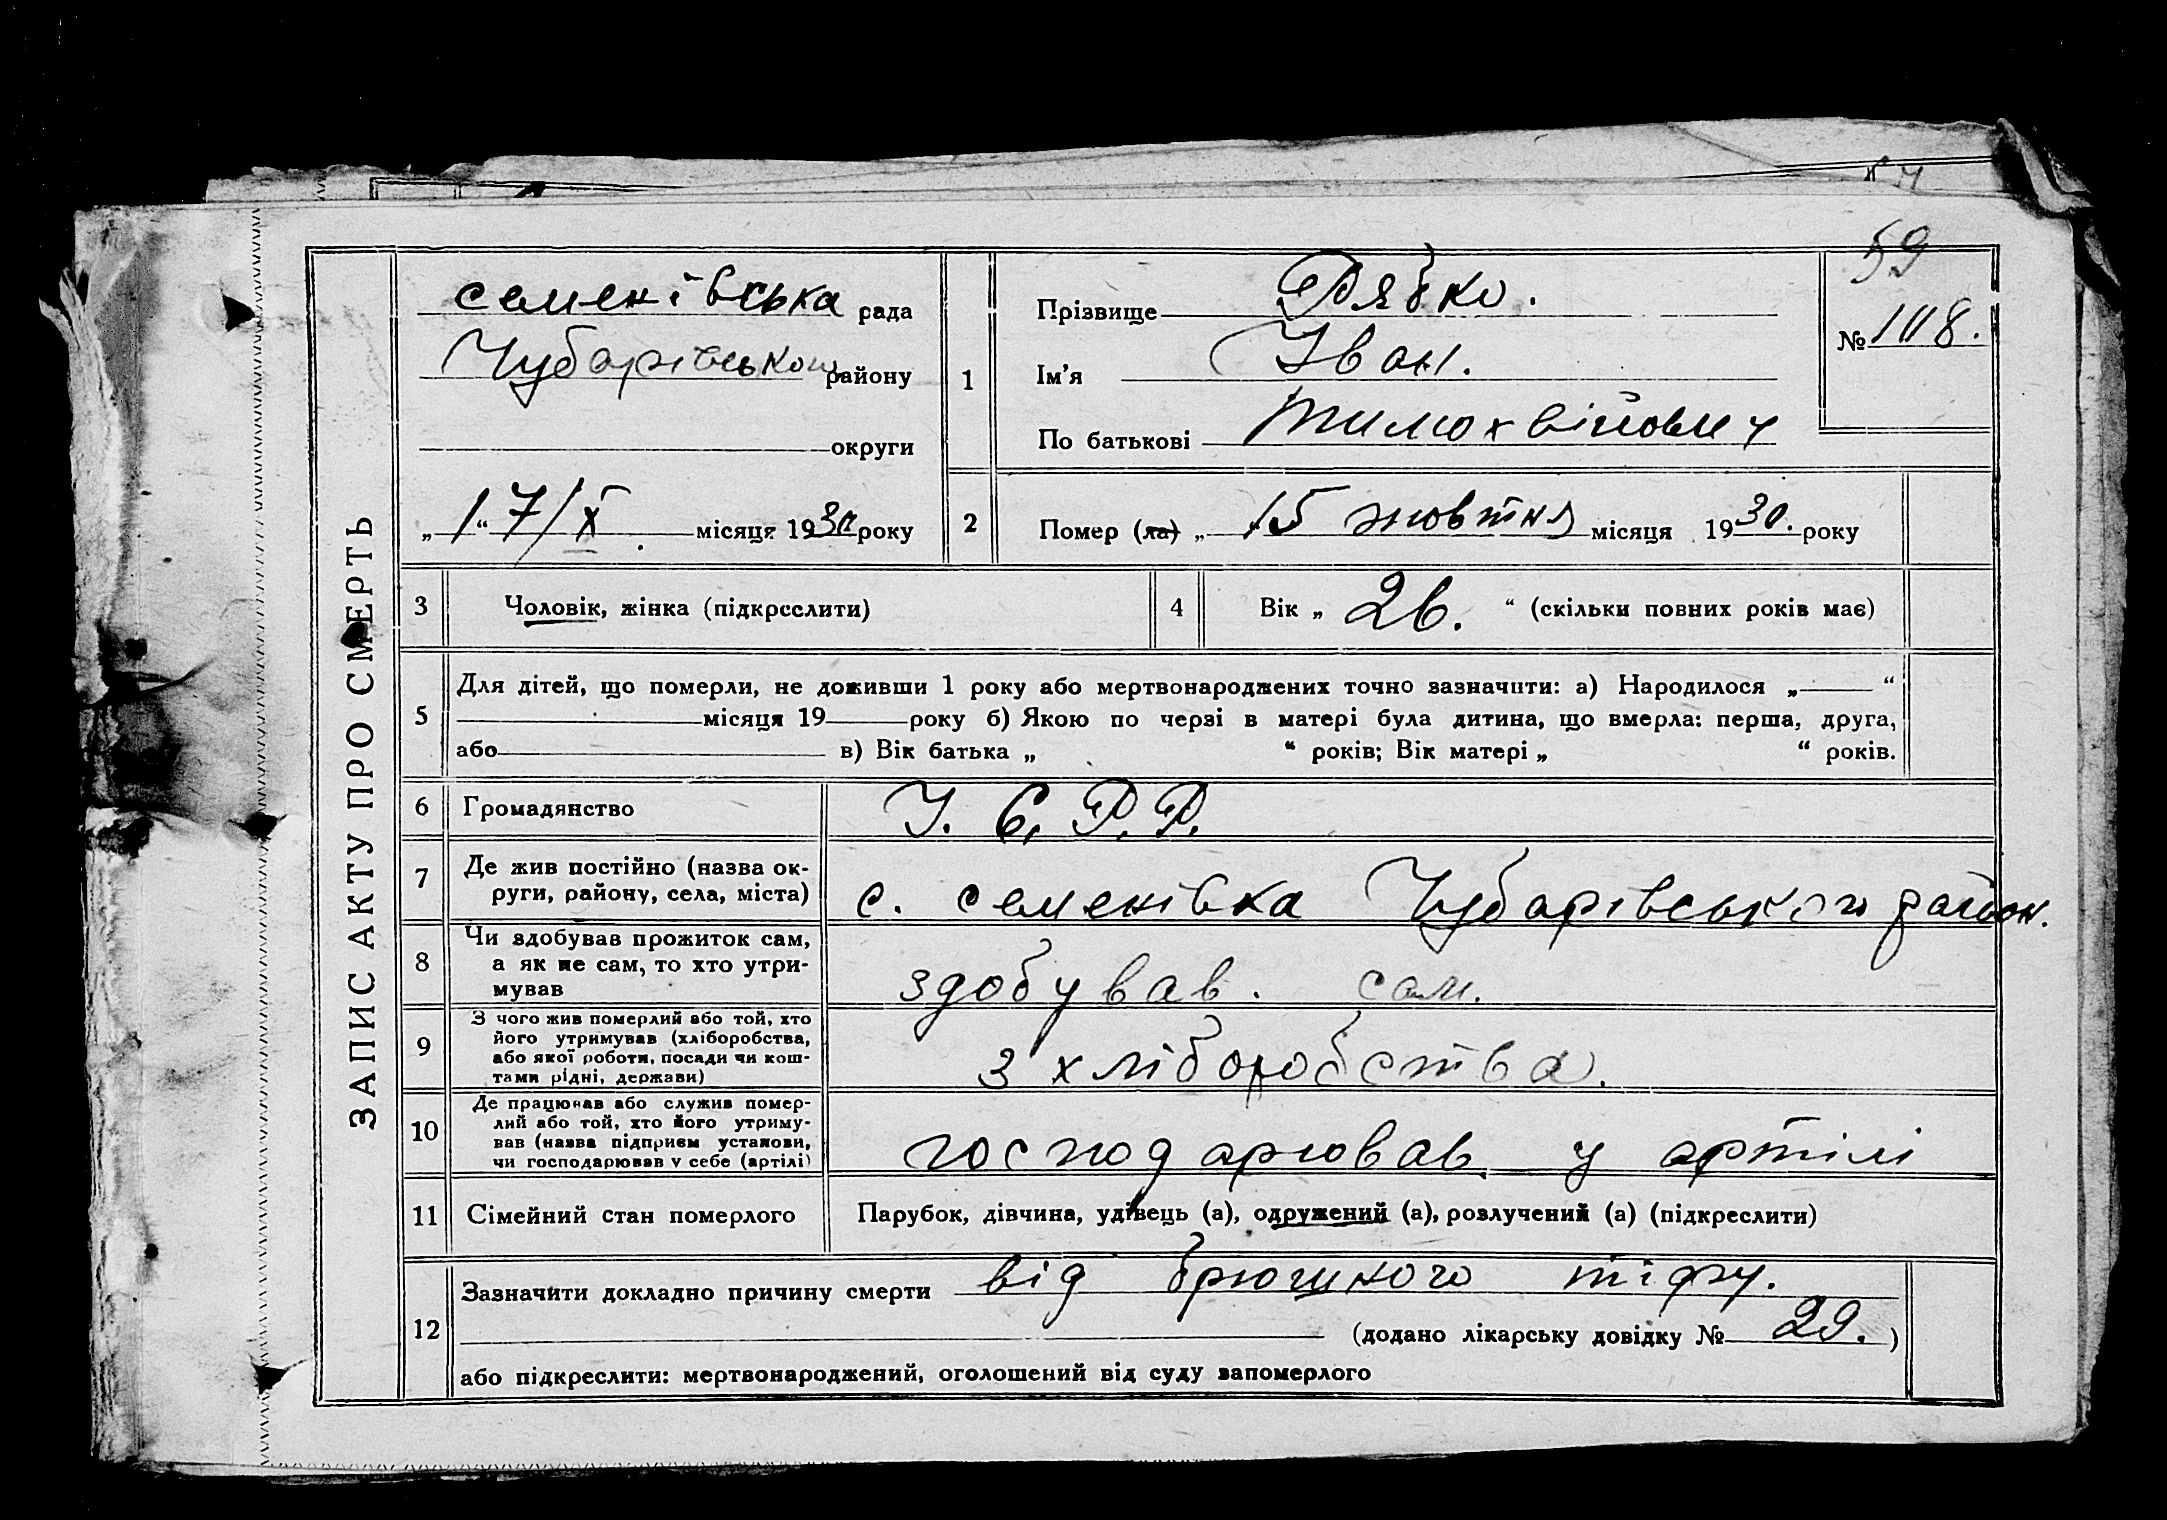 59
ЗАПИС АКТУ ПРО СМЕРТЬ
семенівська рада
Чубарівського району
округи
„17“/X місяця 1930 року
1
Прізвище Рябко.
Ім’я Іван.
По батькові Тимохвійович
№ 108.
2
Помер (ла) „15 жовтня місяця 1930. року
3 Чоловік, жінка (підкреслити)
4 Вік „26.“ (скільки повних років має)
5
Для дітей, що померли, не доживши 1 року або мертвонароджених точно зазначити: а) Народилося „ “
місяця 19 року б) Якою по черзі в матері була дитина, що вмерла: перша, друга,
або в) Вік батька „ “ років; Вік матері „ “ років.
6 Громадянство У. С. Р. Р.
7 Де жив постійно (назва ок-
руги, району, села, міста) с. семенівка Чубарівського район.
8 Чи здобував прожиток сам,
а як не сам, то хто утри-
мував здобував. сам.
9 З чого жив померлий або той, хто
його утримував (хліборобства,
або якої роботи, посади чи кош-
тами рідні, держави) з хліборобства.
10 Де працював або служив помер-
лий або той, хто його утриму-
вав (назва підприєм установи,
чи господарював у себе (артілі) господарював у артілі
11 Сімейний стан померлого Парубок, дівчина, удівець (а), одружений (а), розлучений (а) (підкреслити)
12 Зазначити докладно причину смерти від брюшного тіфу.
(додано лікарську довідку № 29.)
або підкреслити: мертвонароджений, оголошений від суду запомерлого